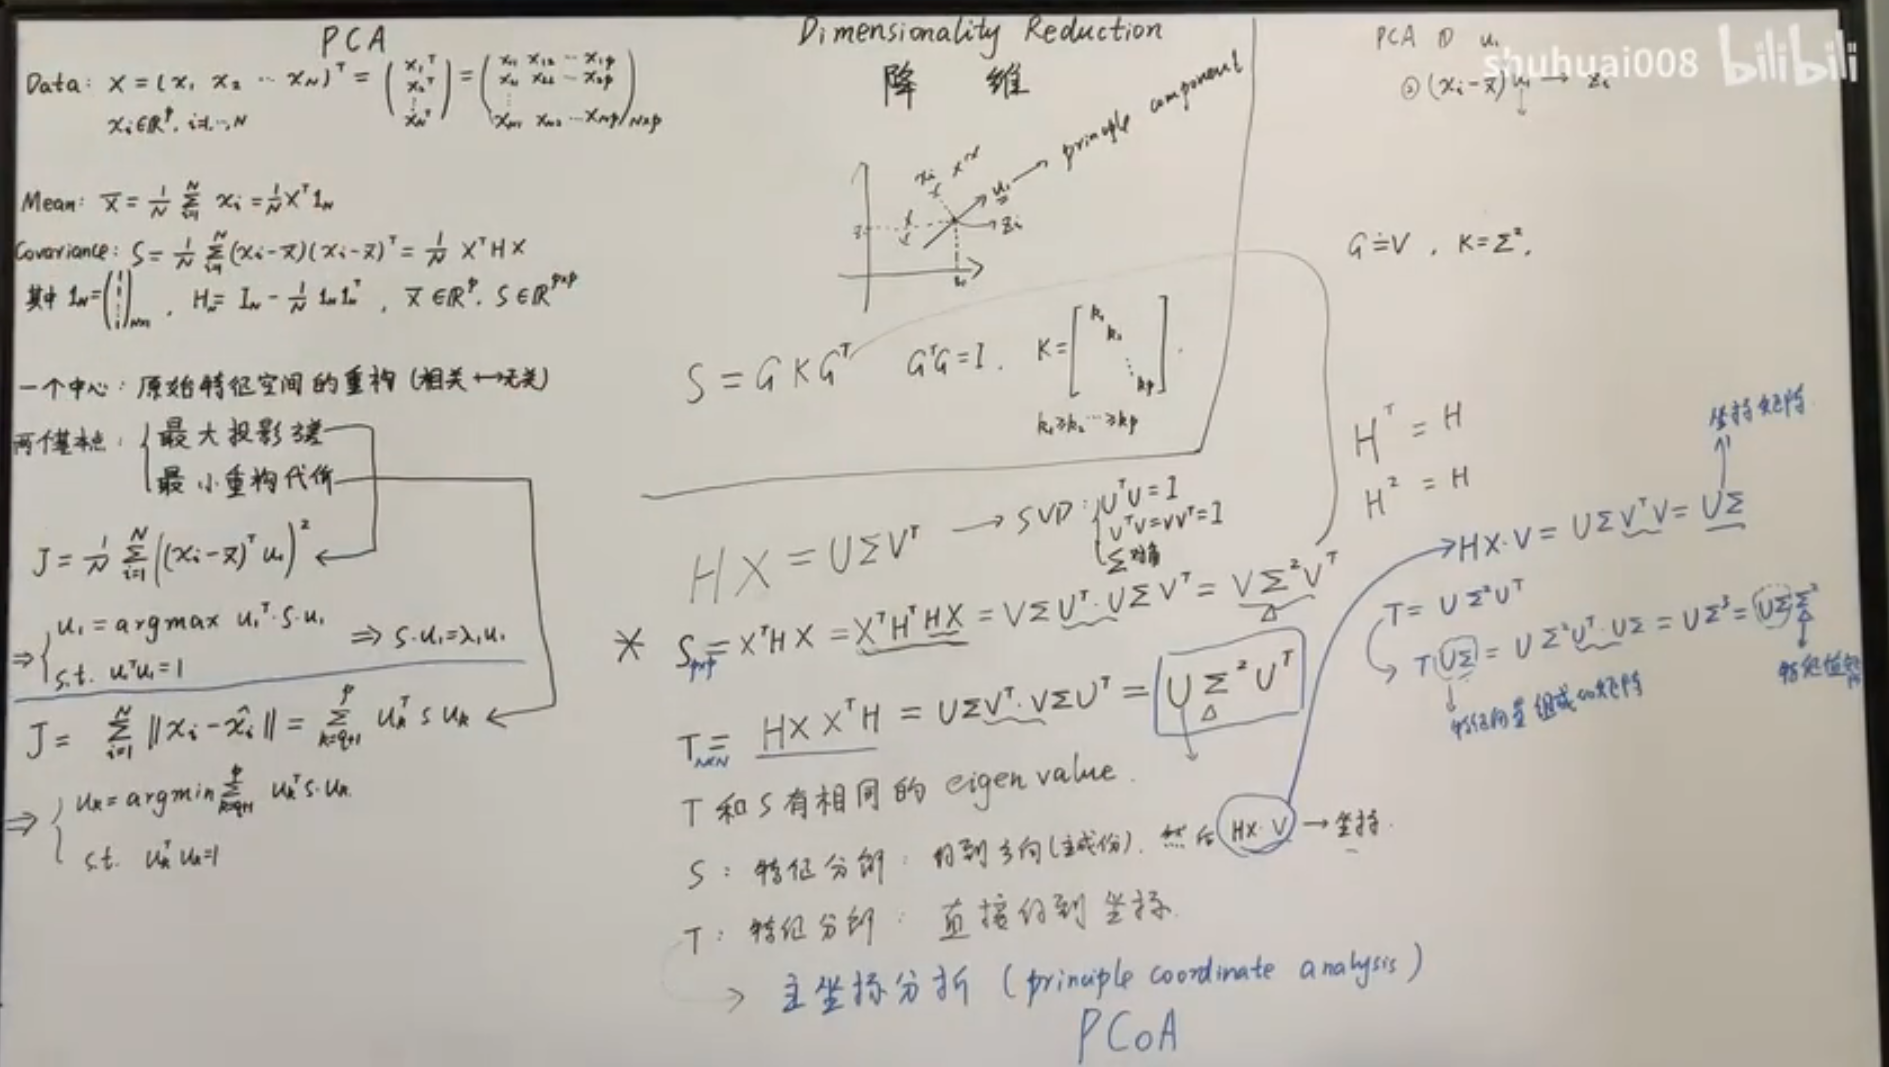 PCA
Data: X = (x₁ x₂ ⋯ x_N)ᵀ = (x₁ᵀ x₂ᵀ ⋮ x_Nᵀ) = (x₁₁ x₁₂ ⋯ x₁p x₂₁ x₂₂ ⋯ x₂p ⋮ x_N1 x_N2 ⋯ x_Np)_N×p
xᵢ∈ℝᵖ, i=1,⋯,N
Mean: x̄ = 1/N Σᵢ₌₁ᴺ xᵢ = 1/N Xᵀ1_N
Covariance: S = 1/N Σᵢ₌₁ᴺ (xᵢ-x̄)(xᵢ-x̄)ᵀ = 1/N XᵀHX
其中 1_N = (1 1 ⋮ 1)_N×1 , H_N = I_N - 1/N 1_N1_Nᵀ , x̄∈ℝᵖ, S∈ℝᵖˣᵖ
一个中心: 原始特征空间的重构 (相关↔无关)
两个基本点: { 最大投影
最小重构代价
J = 1/N Σᵢ₌₁ᴺ ((xᵢ-x̄)ᵀu₁)²
⇒ { u₁ = argmax u₁ᵀ·S·u₁
s.t. u₁ᵀu₁=1
⇒ S·u₁=λ₁u₁
J = Σᵢ₌₁ᴺ ‖xᵢ-x̂ᵢ‖ = Σₖ₌q₊₁ᵖ uₖᵀ S uₖ
⇒ { uₖ = argmin Σₖ₌q₊₁ᵖ uₖᵀS·uₖ
s.t. uₖᵀuₖ=1
Dimensionality Reduction
降 维
principle component
xᵢ
u₁
zᵢ
S = GKGᵀ GᵀG=I. K=[k₁ k₂ ⋱ kp].
k₁≥k₂⋯≥kp
HX = UΣVᵀ → SVD: { UᵀU=I
VᵀV=VVᵀ=I
Σ对角
* S_p×p = XᵀHX = XᵀHᵀHX = VΣUᵀ·UΣVᵀ = VΣ²Vᵀ
T_N×N = HXXᵀH = UΣVᵀ·VΣUᵀ = UΣ²Uᵀ
T 和 S 有相同的 eigen value.
S: 特征分解: 得到方向(主成份), 然后 HX·V → 坐标.
T: 特征分解: 直接得到坐标.
→ 主坐标分析 (principle coordinate analysis)
PCoA
PCA ① u₁
② (xᵢ-x̄)u₁ → zᵢ
shuhuai008 bilibili
G=V, K=Σ²,
Hᵀ = H
H² = H
坐标矩阵
HX·V = UΣVᵀV = UΣ
T = UΣ²Uᵀ
TUΣ = UΣ²Uᵀ·UΣ = UΣ³ = UΣΣ²
特征向量组成的矩阵